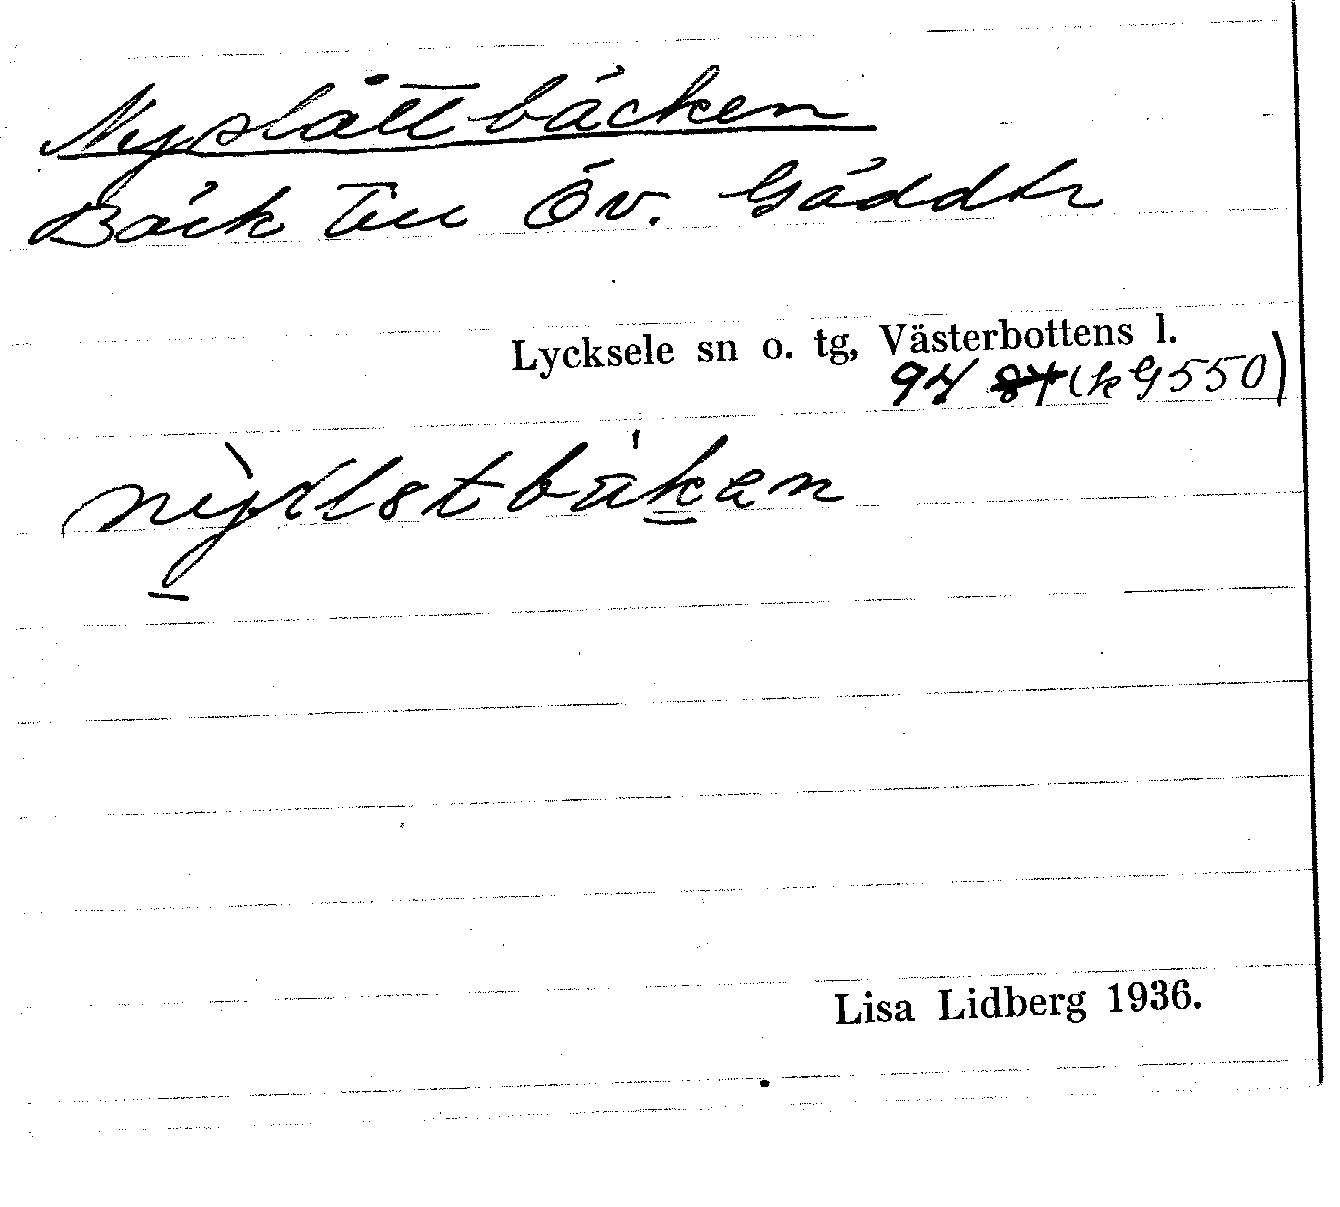 Nyslåttbäcken
Bäck till Öv. Gäddtr
Lycksele sn o. tg, Västerbottens l.
94 (k 9550)
Lisa Lidberg 1936.